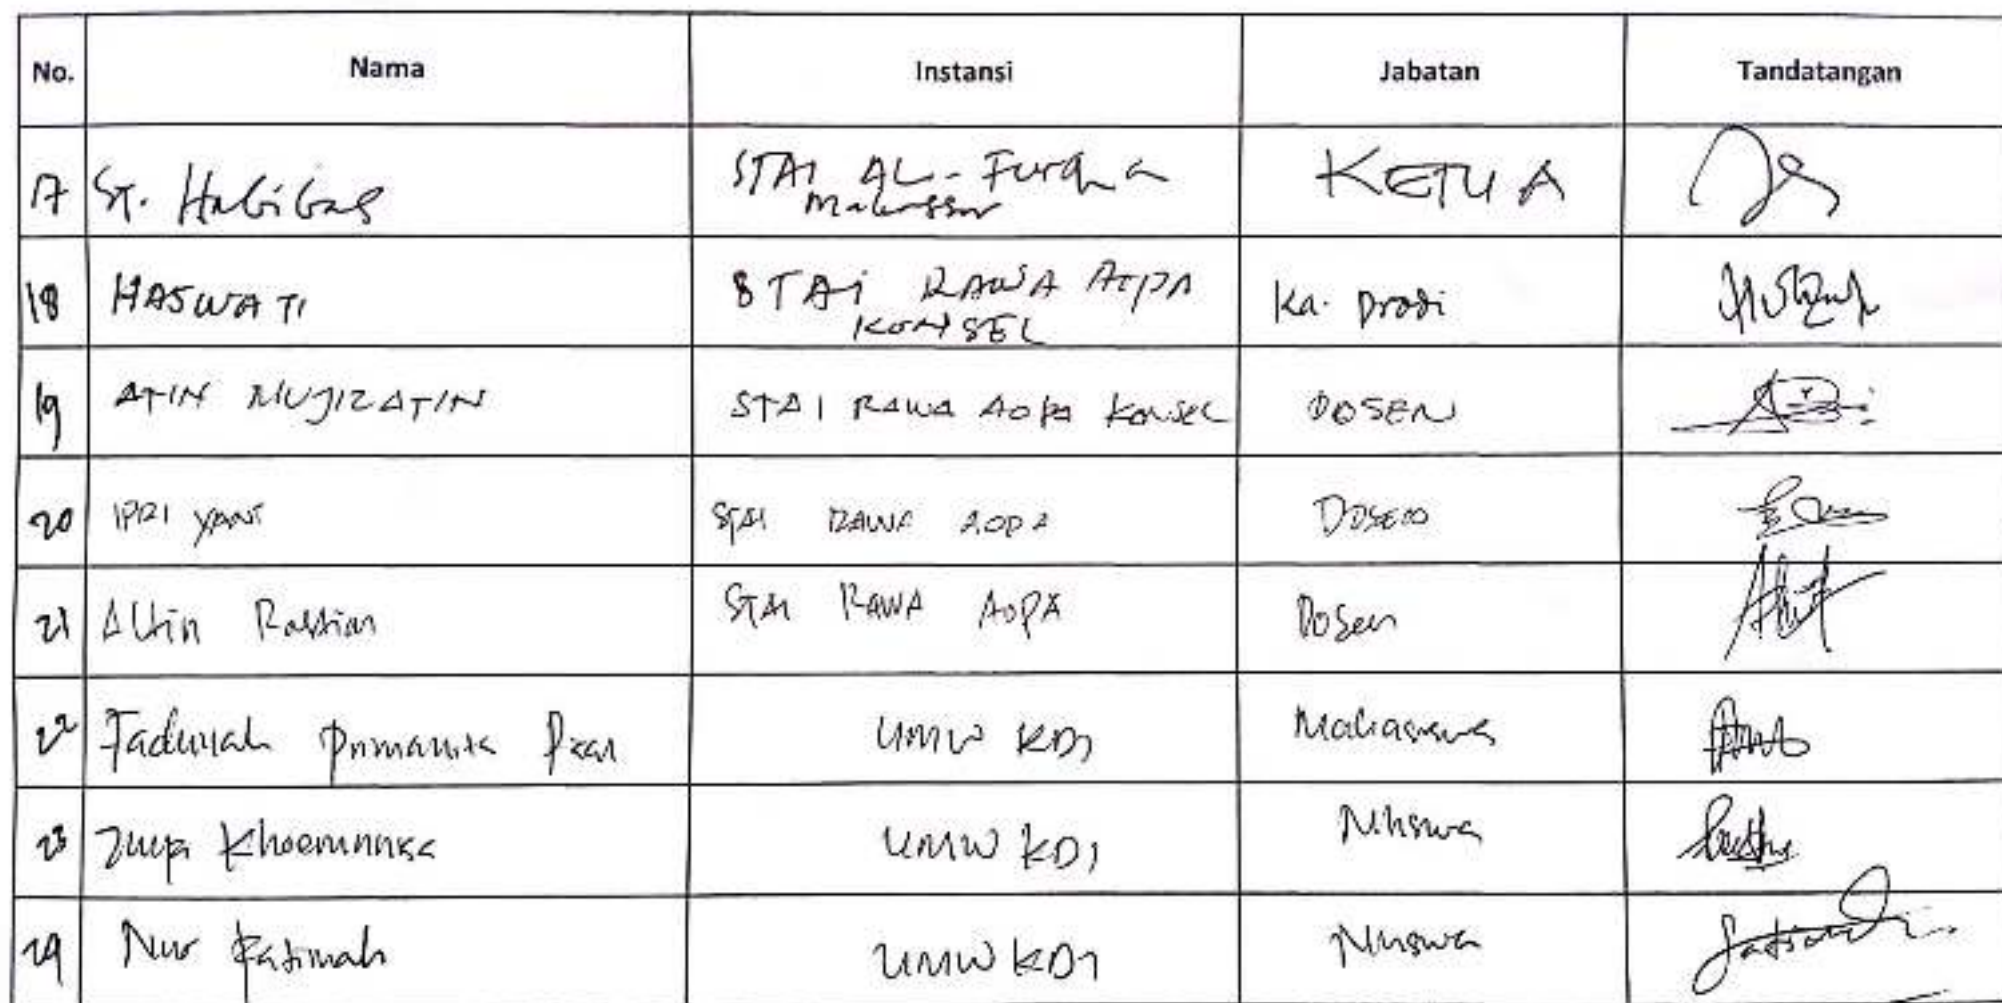 No. Nama Instansi Jabatan Tandatangan
17 St. Habibah STAI AL-Furqan Makassar KETUA
18 HASWATI STAi RAWA AOPA KONSEL Ka. Prodi
19 ATIN MUJIZATIN STAI RAWA AOPA KONSEL DOSEN
20 IPRI YANI STAI RAWA AOPA DOSEN
21 Rastian STAI RAWA AOPA Dosen
22 UMW KDI Mahasiswa
23 UMW KDI Mhswa
24 Nur Fatimah UMW KDI Mhswa